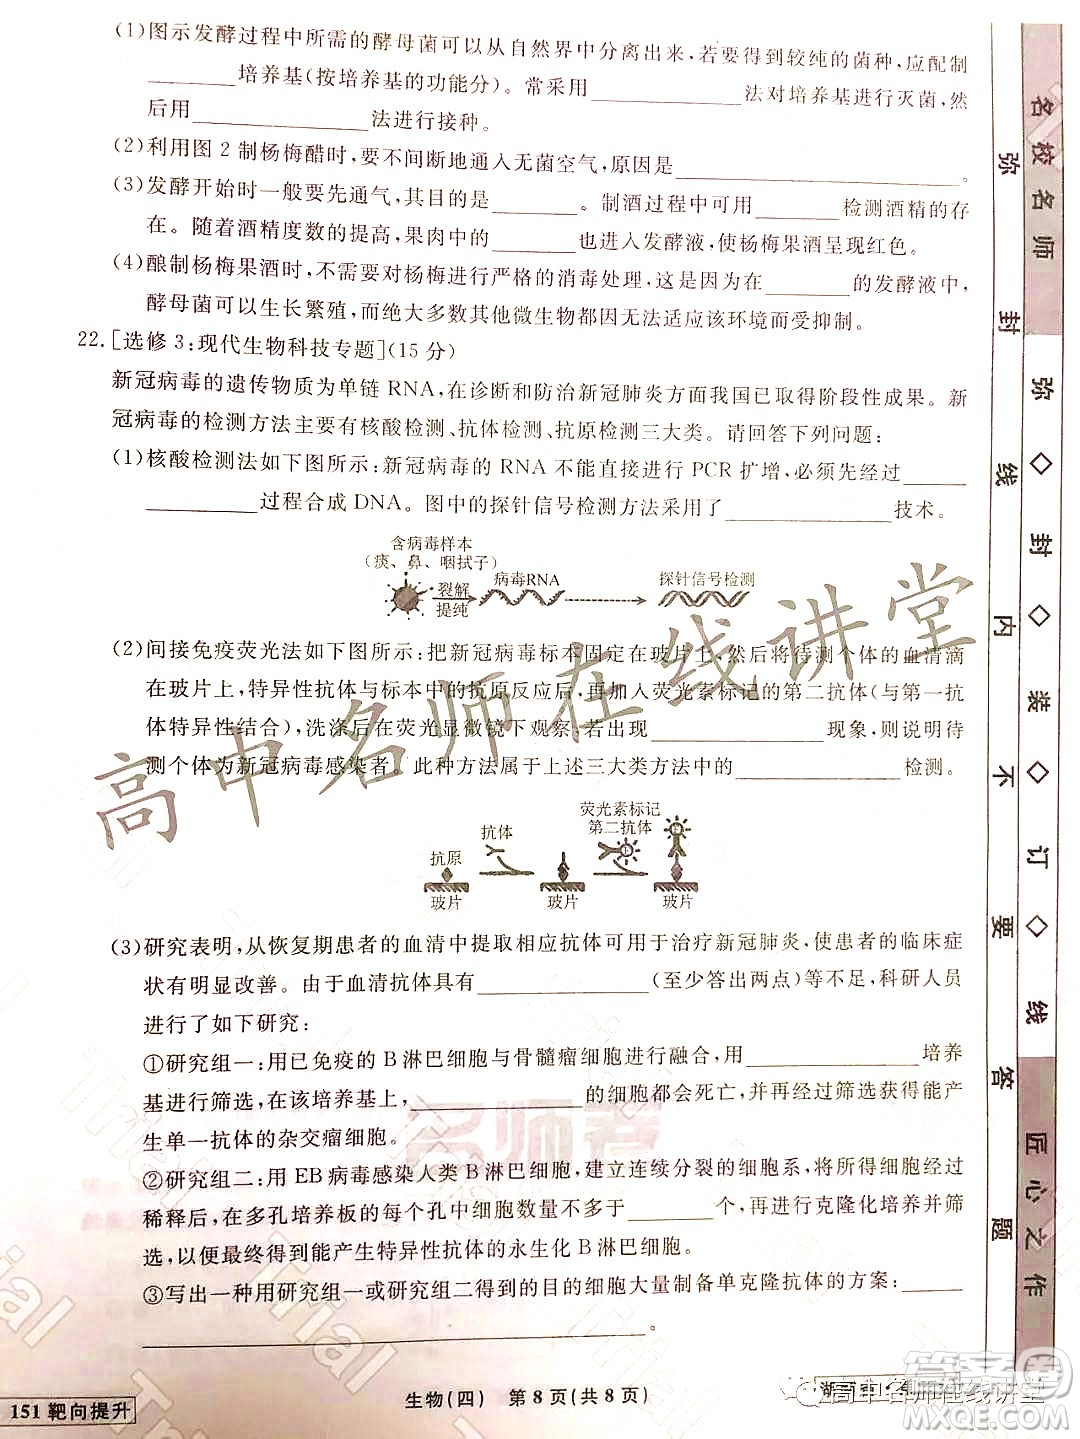 (1)图示发酵过程中所需的酵母菌可以从自然界中分离出来,若要得到较纯的菌种,应配制
________培养基(按培养基的功能分)。常采用____________法对培养基进行灭菌,然
后用____________法进行接种。
(2)利用图 2 制杨梅醋时,要不间断地通入无菌空气,原因是____________________。
(3)发酵开始时一般要先通气,其目的是________。制酒过程中可用________检测酒精的存
在。随着酒精度数的提高,果肉中的________也进入发酵液,使杨梅果酒呈现红色。
(4)酿制杨梅果酒时,不需要对杨梅进行严格的消毒处理,这是因为在________的发酵液中,
酵母菌可以生长繁殖,而绝大多数其他微生物都因无法适应该环境而受抑制。
22.[选修 3:现代生物科技专题](15 分)
新冠病毒的遗传物质为单链 RNA,在诊断和防治新冠肺炎方面我国已取得阶段性成果。新
冠病毒的检测方法主要有核酸检测、抗体检测、抗原检测三大类。请回答下列问题:
(1)核酸检测法如下图所示:新冠病毒的 RNA 不能直接进行 PCR 扩增,必须先经过______
________过程合成 DNA。图中的探针信号检测方法采用了____________技术。
含病毒样本
(痰、鼻、咽拭子)
裂解
提纯
病毒RNA
探针信号检测
(2)间接免疫荧光法如下图所示:把新冠病毒标本固定在玻片上,然后将待测个体的血清滴
在玻片上,特异性抗体与标本中的抗原反应后,再加入荧光素标记的第二抗体(与第一抗
体特异性结合),洗涤后在荧光显微镜下观察,若出现____________现象,则说明待
测个体为新冠病毒感染者。此种方法属于上述三大类方法中的____________检测。
抗原
玻片
抗体
玻片
荧光素标记
第二抗体
玻片
(3)研究表明,从恢复期患者的血清中提取相应抗体可用于治疗新冠肺炎,使患者的临床症
状有明显改善。由于血清抗体具有____________(至少答出两点)等不足,科研人员
进行了如下研究:
①研究组一:用已免疫的 B 淋巴细胞与骨髓瘤细胞进行融合,用____________培养
基进行筛选,在该培养基上,____________的细胞都会死亡,并经过筛选获得能产
生单一抗体的杂交瘤细胞。
②研究组二:用 EB 病毒感染人类 B 淋巴细胞,建立连续分裂的细胞系,将细胞进行
稀释后,在多孔培养板的每个孔中细胞数量不多于________个,再进行克隆化培养并筛
选,以便最终得到能产生特异性抗体的永生化 B 淋巴细胞。
③写出一种用研究组一或研究组二得到的细胞大量制备单克隆抗体的方案:______
____________________________________。
生物(四)　第 8 页(共 8 页)
151 靶向提升
名校名师
弥◇封◇装◇订◇线
匠心之作
弥封线内不要答题
高中名师在线讲堂
名师卷
Trial
高中名师在线讲堂
答案圈
MXQE.COM